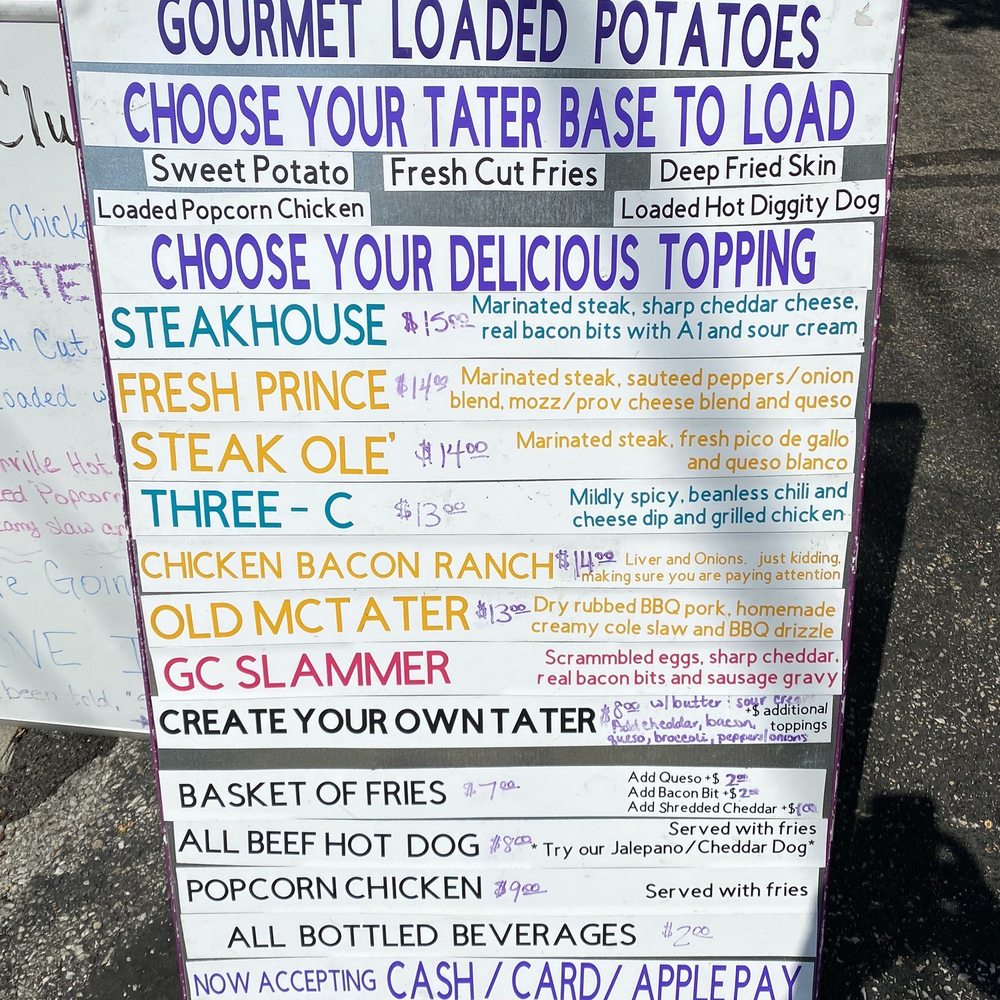 GOURMET LOADED POTATOES
CHOOSE YOUR TATER BASE TO LOAD
Sweet Potato Fresh Cut Fries Deep Fried Skin
Loaded Popcorn Chicken Loaded Hot Diggity Dog
CHOOSE YOUR DELICIOUS TOPPING
STEAKHOUSE $15.00 Marinated steak, sharp cheddar cheese,
real bacon bits with A1 and sour cream
FRESH PRINCE $14.00 Marinated steak, sauteed peppers/onion
blend, mozz/prov cheese blend and queso
STEAK OLE' $14.00 Marinated steak, fresh pico de gallo
and queso blanco
THREE - C $13.00 Mildly spicy, beanless chili and
cheese dip and grilled chicken
CHICKEN BACON RANCH $14.00 Liver and Onions. just kidding,
making sure you are paying attention
OLD MCTATER $13.00 Dry rubbed BBQ pork, homemade
creamy cole slaw and BBQ drizzle
GC SLAMMER Scrammbled eggs, sharp cheddar,
real bacon bits and sausage gravy
CREATE YOUR OWN TATER $8.00 w/butter: sour cream
+$ additional
toppings
Add cheddar, bacon,
queso, broccoli, peppers/onions
BASKET OF FRIES $7.00 Add Queso +$ 2.00
Add Bacon Bit +$ 2.00
Add Shredded Cheddar +$ 1.00
ALL BEEF HOT DOG $8.00 Served with fries
* Try our Jalepano/Cheddar Dog*
POPCORN CHICKEN $9.00 Served with fries
ALL BOTTLED BEVERAGES $2.00
NOW ACCEPTING CASH / CARD / APPLE PAY
Clu
Chick
ATE
sh Cut
oaded w
ville Hot
ed Popcorn
slaw
e Goin
VE I
been told, "S